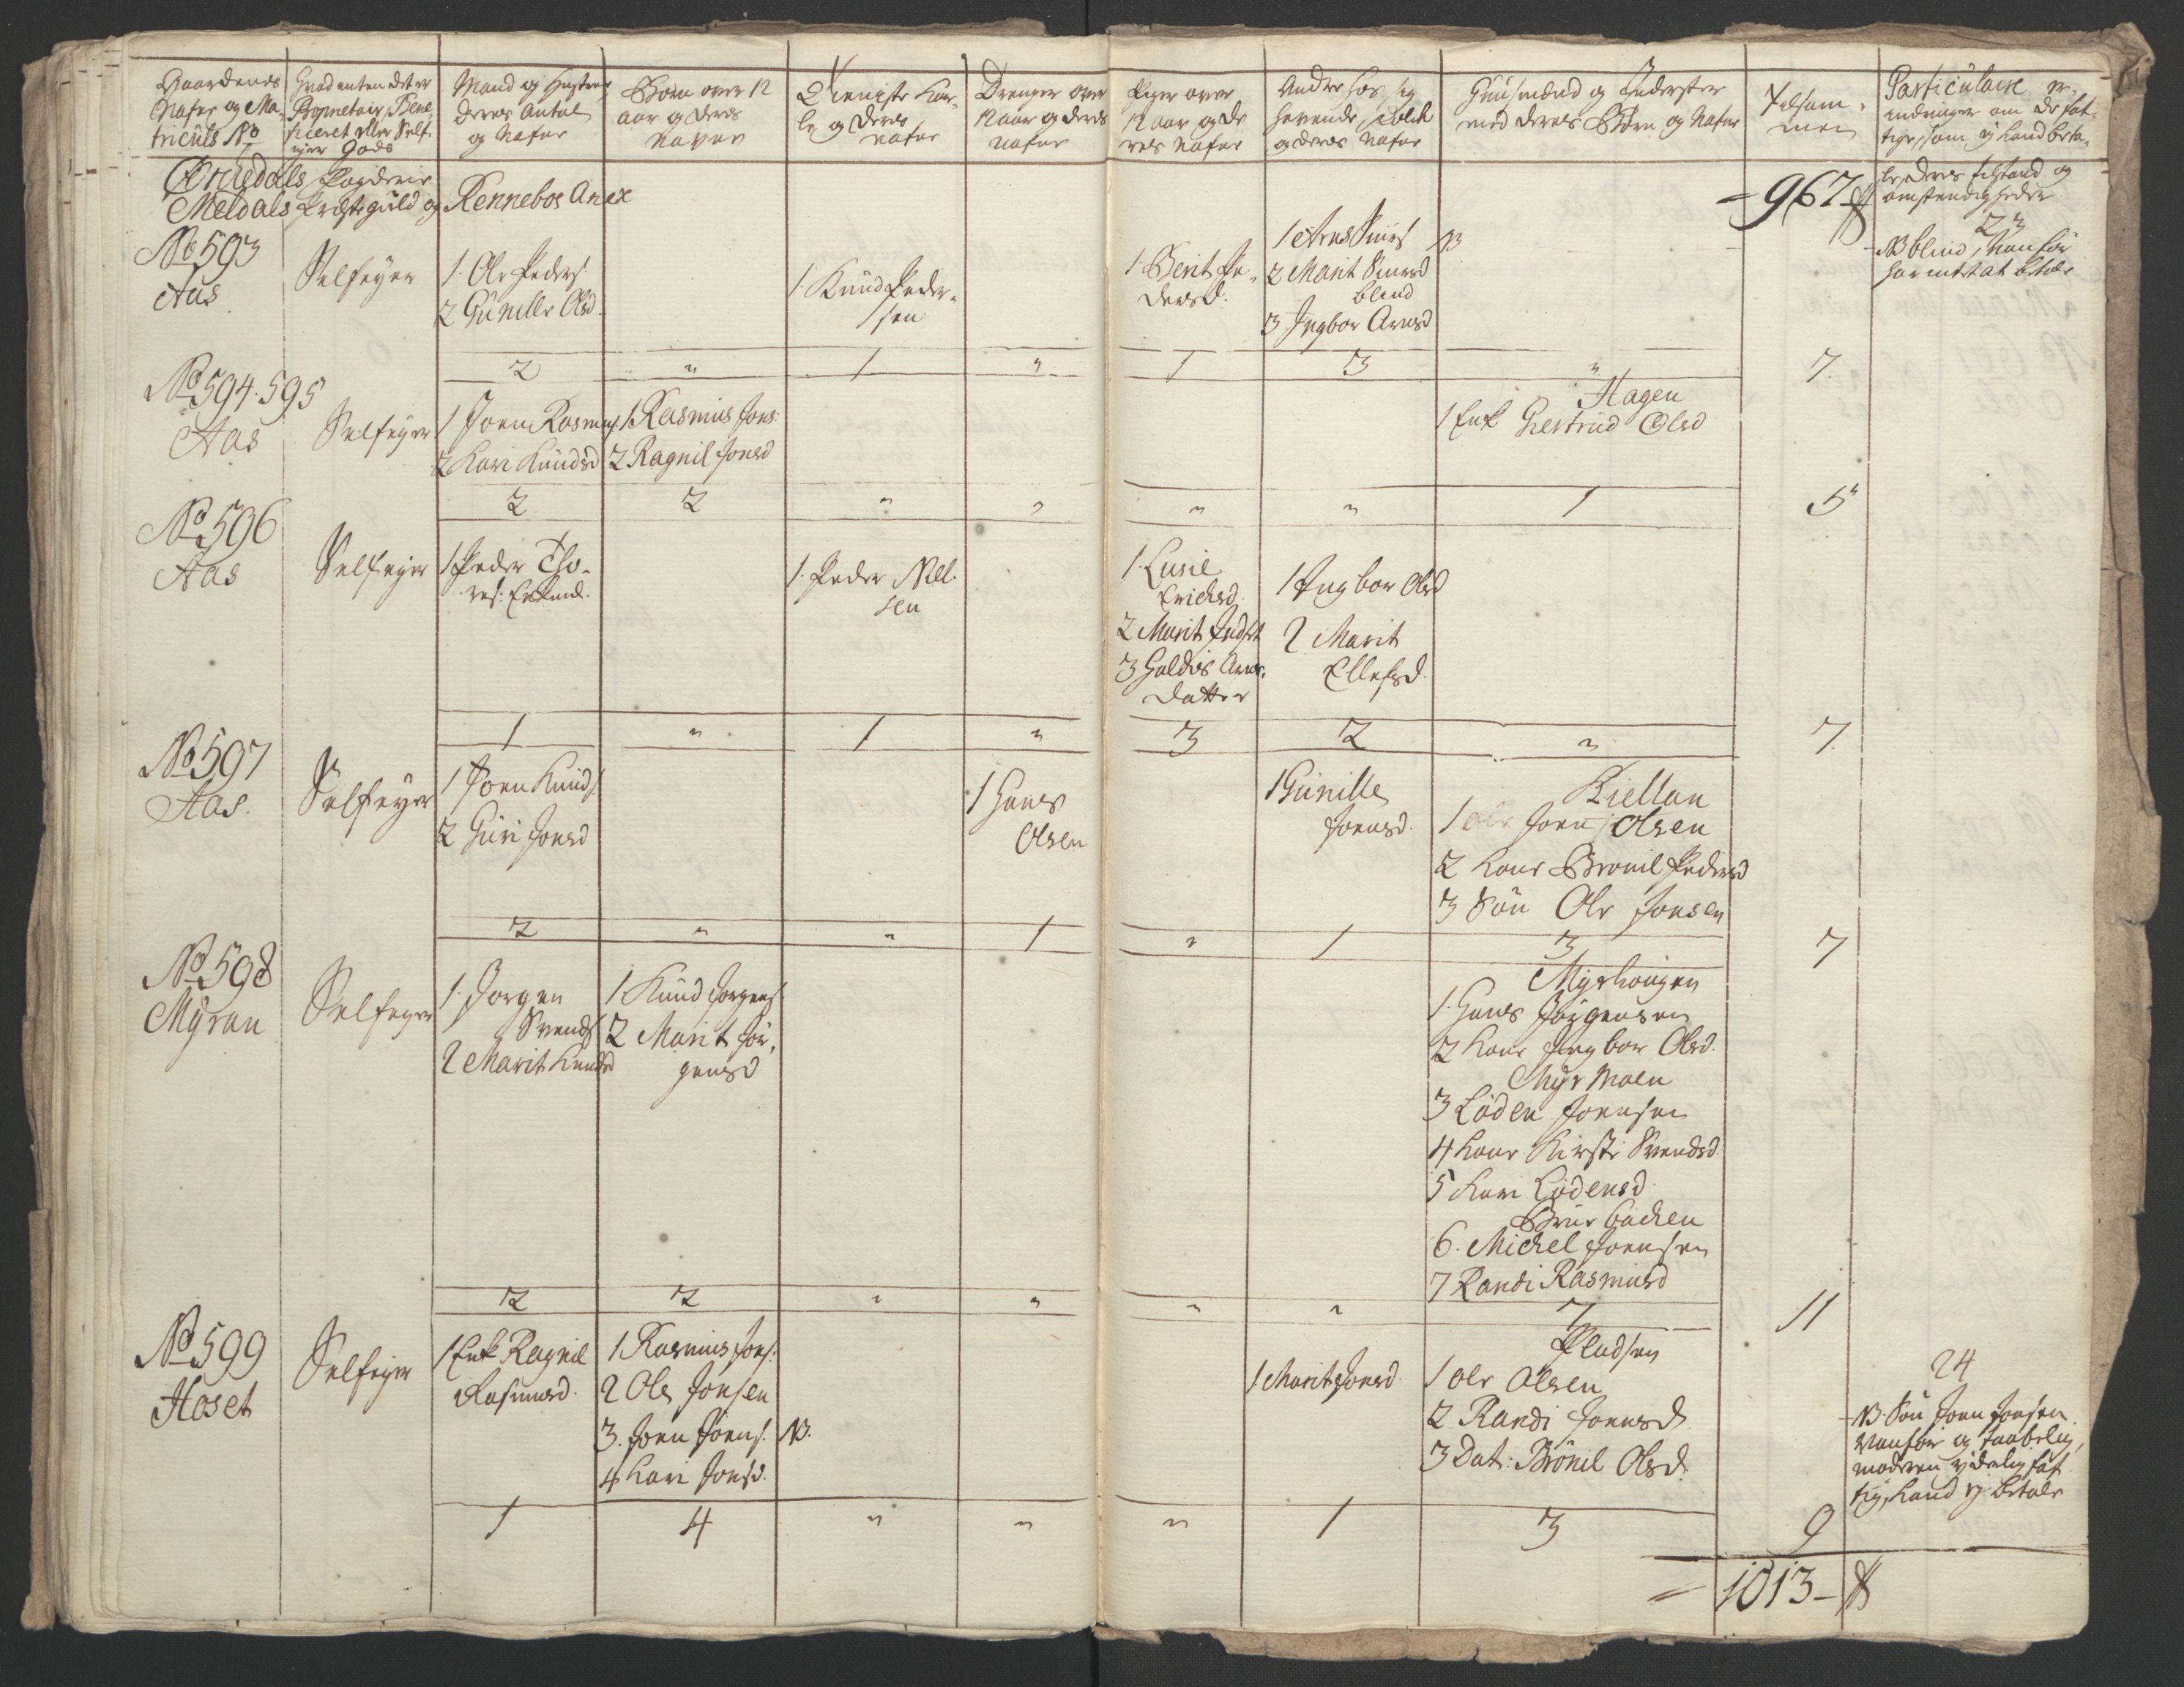 Gaardenes Nafne og Matriculs No
Hvad enten det er Proprietair, Beneficeret eller Selfeyer Gods
Mand og Hustrue deres Antal og Nafne
Børn over 12 aar og deres Navne
Tieniste Karle og deres Nafne
Drenge over 12 aar og deres Nafne
Piger over 12 aar og deres Nafne
Andre hos sig havende og deres Nafne
Huusmænd og Inderster med deres Børn og Nafne
Tilsammen
Particulaire erindringer om de fattige, som ej kand betale, deres tilstand og omstendigheder
Meldals Præstegield og Renneboe Anex
967
No 593
Aas
Selfeyer
1. Ole Peders
2 Gunille Olsd
1. Knud Pedersen
1. Berit Pedersd:
1 Arne
NB
2 Marit
blind
3 Ingbor Arnsd
23
NB blind, Vanfør
2 " 1 " 1 3 " 7.
No 594. 595
Aas
Selfeyer
1 Joen Rasmus
2 Kari Knudsd
1 Rasmus Jons:
2 Ragnil Jonsd
Hagen
1 Enk Giertrud Olsd
2 2 " " " " 1 5
No 596
Aas
Selfeyer
1 Peder Tho-
res: Enkmd.
1. Peder Nil-
sen
1. Lusie
Erichsd.
2 Marit
3 Goldis Arns-
datter
1 Ingbor Olsd
2 Marit
Ellefsd.
1 " 1 " 3 2 " 7.
No 597
Aas.
Selfeyer
1 Joen Knuds
2 Guri Jonsd
1 Hans
Olsen
1 Gunille
Joensd.
Kiellan
1 Joen Olsen
2 Kone Bronil Pedersd
3 Søn Ole Jonsen
2 " " 1 " 1 3 7
No 598
Myran
Selfeyer
1. Jørgen
Svends
2 Marit Knudsd
1 Knud Jørgens
2 Marit Jør-
gensd
Myrhougen
1. Hans Jørgensen
2 Kone Ingbor Olsd.
Myr Moen
3 Loden Joensen
4 Kone Kirsti Svendsd
5 Kari Lodensd.
backen
6. Michel Joensen
7 Randi Rasmusd
2 2 " " " " 7 11
No 599
Hoset
Selfeyer
1 Enk Ragnil
Rasmusd.
1 Rasmus Jons:
2 Ole Jonsen
3. Joen Joens. NB.
4 Kari Jonsd.
1 Marit Jonsd.
Pladsen
1 Ole Olsen
2 Randi Joensd
3 Dat: Bronil Olsd.
24
NB. Søn Joen Jonsen
Vanfør og taabelig,
moderen yderlig fat-
tig, kand ej betale
1 4 " " " 1 3 9
1013